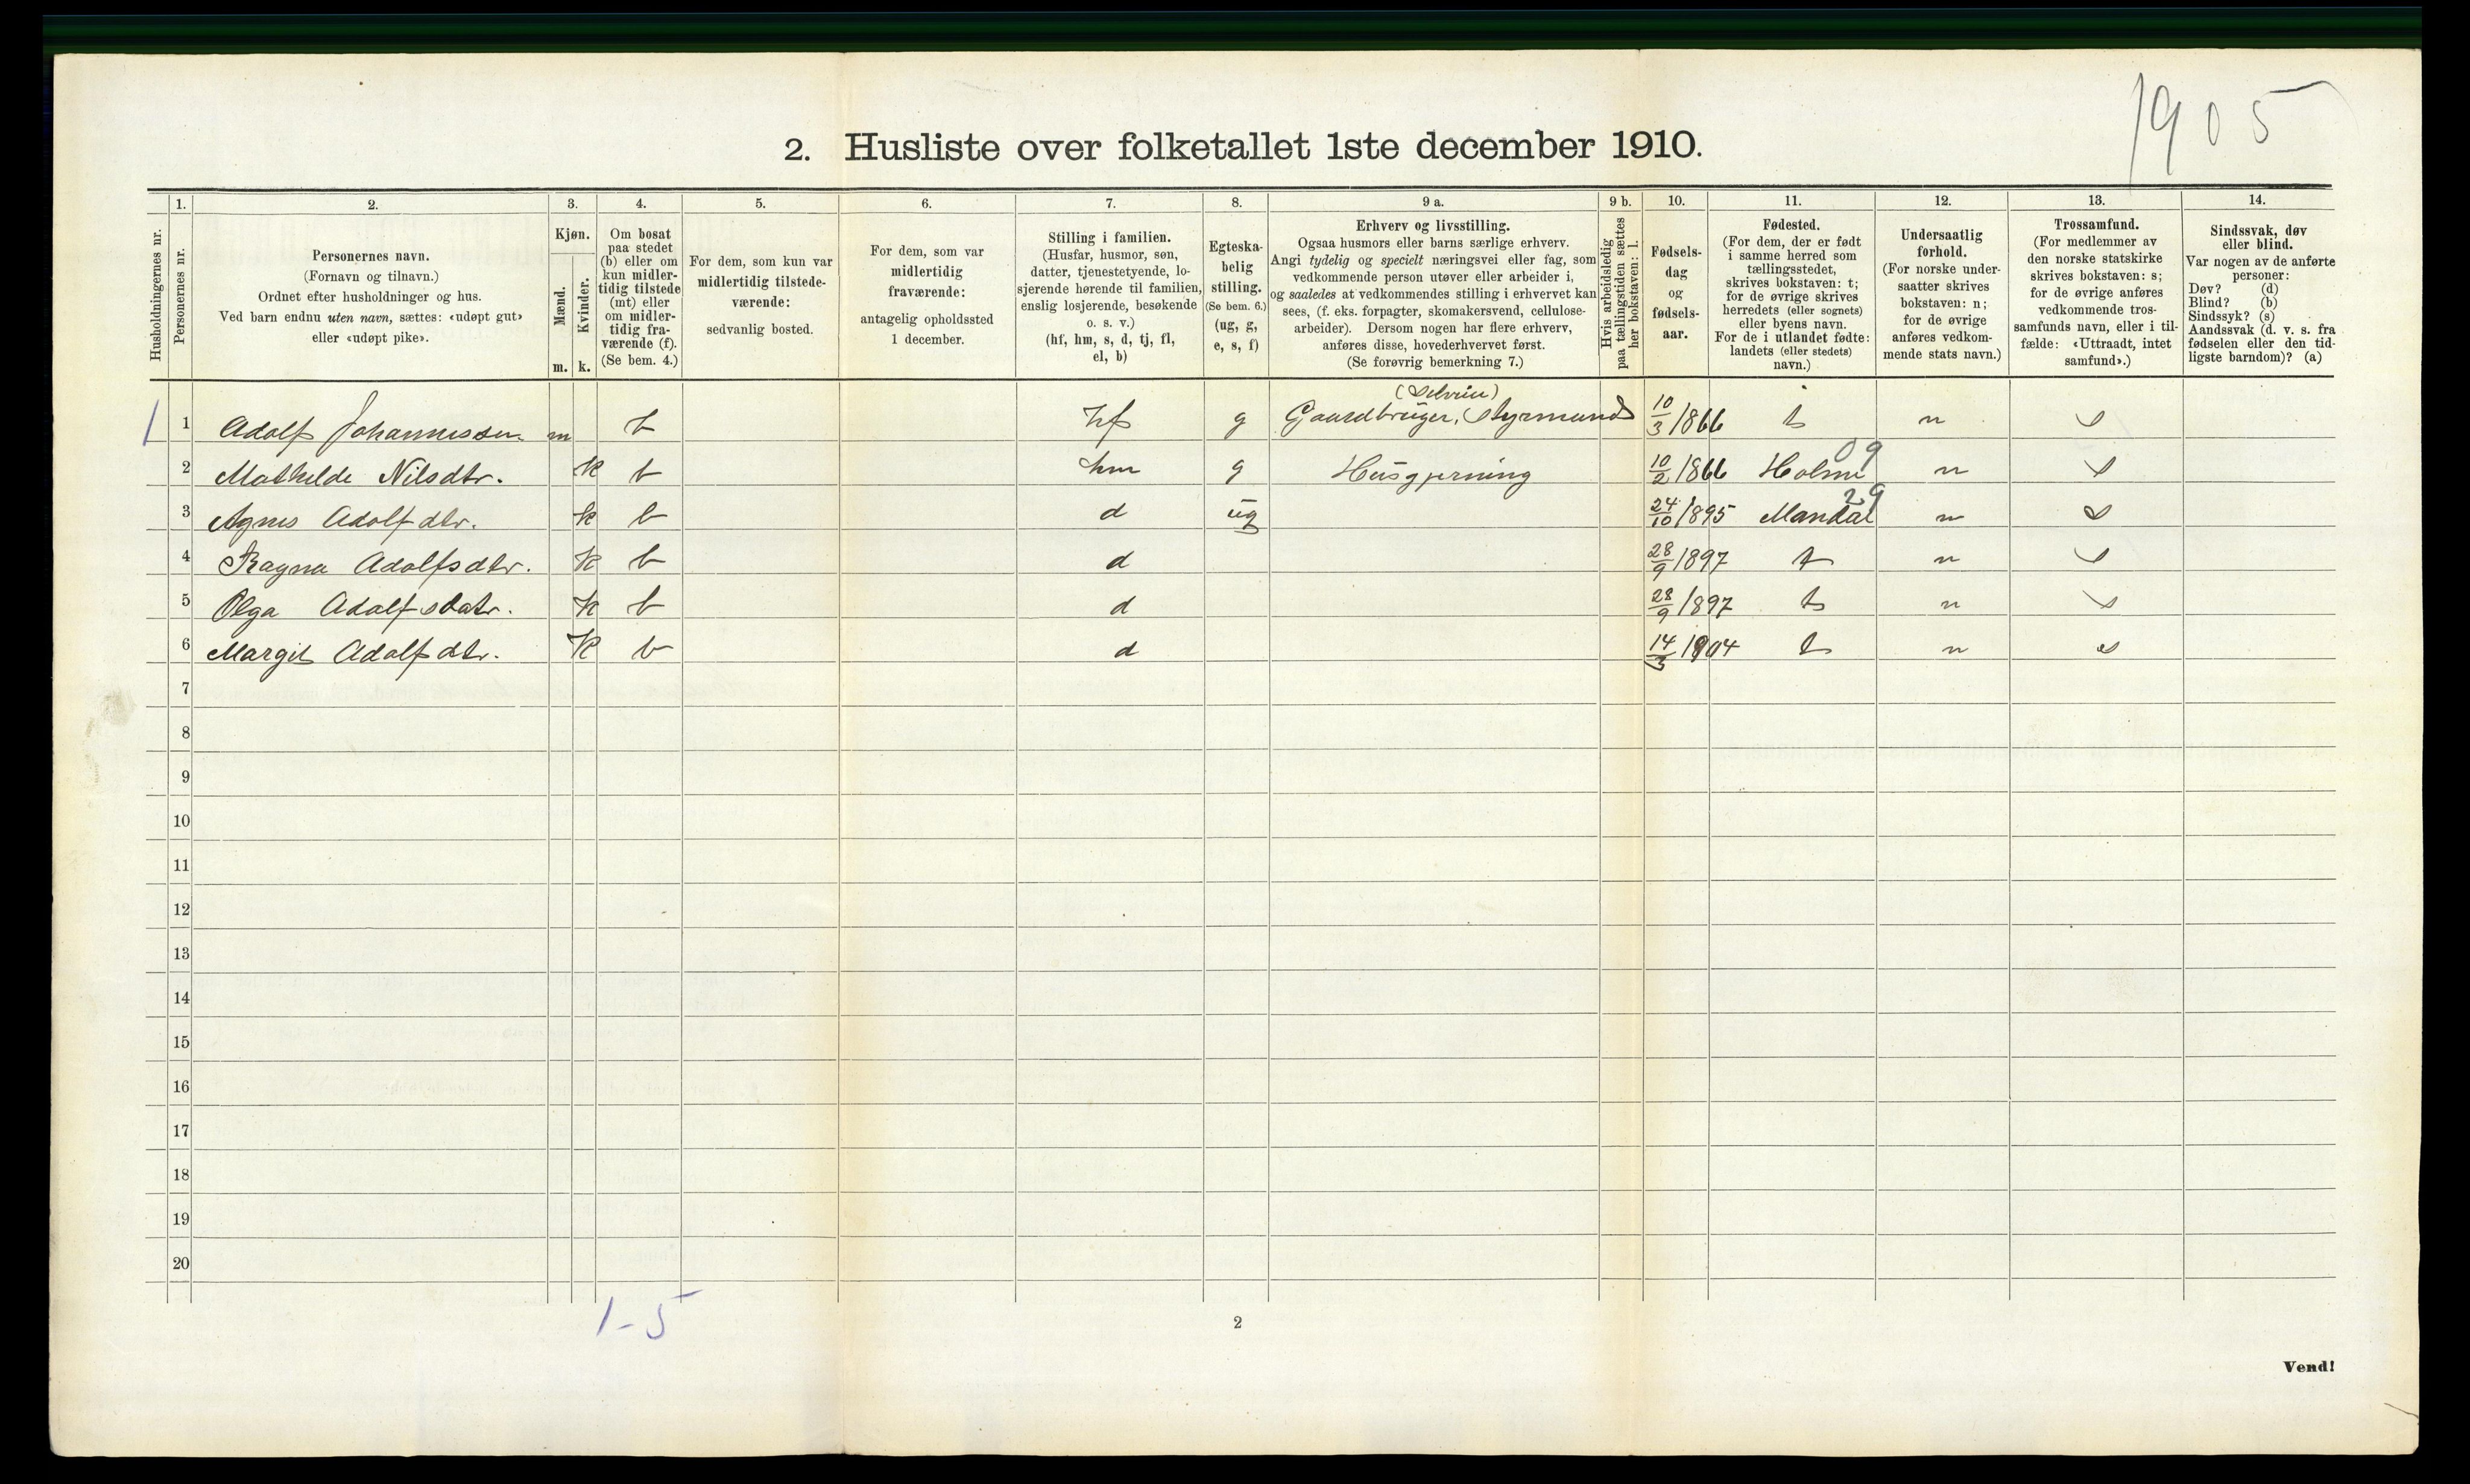 1905
2. Husliste over folketallet 1ste december 1910.
Husholdningernes nr.
1.
Personernes nr.
2.
Personernes navn.
(Fornavn og tilnavn.)
Ordnet efter husholdninger og hus.
Ved barn endnu uten navn, sættes: «udøpt gut»
eller «udøpt pike».
3.
Kjøn.
Mænd.
Kvinder.
m. k.
4.
Om bosat
paa stedet
(b) eller om
kun midler-
tidig tilstede
(mt) eller
om midler-
tidig fra-
værende (f).
(Se bem. 4.)
5.
For dem, som kun var
midlertidig tilstede-
værende:
sedvanlig bosted.
6.
For dem, som var
midlertidig
fraværende:
antagelig opholdssted
1 december.
7.
Stilling i familien.
(Husfar, husmor, søn,
datter, tjenestetyende, lo-
sjerende hørende til familien,
enslig losjerende, besøkende
o. s. v.)
(hf, hm, s, d, tj, fl,
el, b)
8.
Egteska-
belig
stilling.
(Se bem. 6.)
(ug, g,
e, s, f)
9 a.
Erhverv og livsstilling.
Ogsaa husmors eller barns særlige erhverv.
Angi tydelig og specielt næringsvei eller fag, som
vedkommende person utøver eller arbeider i,
og saaledes at vedkommendes stilling i erhvervet kan
sees, (f. eks. forpagter, skomakersvend, cellulose-
arbeider). Dersom nogen har flere erhverv,
anføres disse, hovederhvervet først.
(Se forøvrig bemerkning 7.)
9 b.
Hvis arbeidsledig
paa tællingstiden sættes
her bokstaven: l.
10.
Fødsels-
dag
og
fødsels-
aar.
11.
Fødested.
(For dem, der er født
i samme herred som
tællingsstedet,
skrives bokstaven: t;
for de øvrige skrives
herredets (eller sognets)
eller byens navn.
For de i utlandet fødte:
landets (eller stedets)
navn.)
12.
Undersaatlig
forhold.
(For norske under-
saatter skrives
bokstaven: n;
for de øvrige
anføres vedkom-
mende stats navn.)
13.
Trossamfund.
(For medlemmer av
den norske statskirke
skrives bokstaven: s;
for de øvrige anføres
vedkommende tros-
samfunds navn, eller i til-
fælde: «Uttraadt, intet
samfund».)
14.
Sindssvak, døv
eller blind.
Var nogen av de anførte
personer:
Døv? (d)
Blind? (b)
Sindssyk? (s)
Aandssvak (d. v. s. fra
fødselen eller den tid-
ligste barndom)? (a)
(Selveier)
1 1 Adolf Johannessen m b hf g Gaardbruger, Styrmand 10/3 1866 t n s
09
2 Mathilde Nilsdtr. k b hm g Husgjerning 10/2 1866 Holme n s
29
3 Agnes Adolfdtr. k b d ug 24/10 1895 Mandal n s
4 Ragna Adolfsdtr. k b d 28/9 1897 t n s
5 Olga Adolfsdatr. k b d 28/9 1897 t n s
6 Margit Adolfdtr. k b d 14/3 1904 t n s
7
8
9
10
11
12
13
14
15
16
17
18
19
20
1-5
2
Vend!